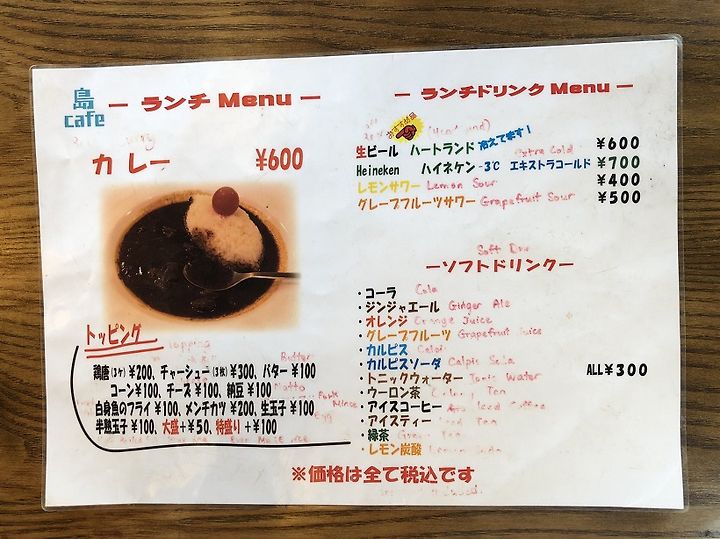 島
cafe
ー ランチ Menu ー
カレー ¥600
トッピング
Topping
Butter
鶏唐(3ケ)¥200、チャーシュー(3枚)¥300、バター ¥100
コーン¥100、チーズ ¥100、納豆 ¥100
Natto
白身魚のフライ ¥100、メンチカツ ¥200、生玉子 ¥100
Egg
半熟玉子 ¥100、大盛+¥50、特盛り+¥100
ー ランチドリンク Menu ー
おすすめ
生ビール ハートランド 冷えてます! ¥600
Extra Cold
Heineken ハイネケン -3℃ エキストラコールド ¥700
レモンサワー Lemon Sour ¥400
グレープフルーツサワー Grapefruit Sour ¥500
Soft
ーソフトドリンクー
・コーラ Cola
・ジンジャエール Ginger Ale
・オレンジ Orange Juice
・グレープフルーツ Grapefruit Juice
・カルピス Calpis
・カルピスソーダ Calpis Soda
ALL¥300
・トニックウォーター Tonic Water
・ウーロン茶 Tea
・アイスコーヒー Iced Coffee
・アイスティー Iced Tea
・緑茶 Green Tea
・レモン炭酸 Lemon Soda
※価格は全て税込です